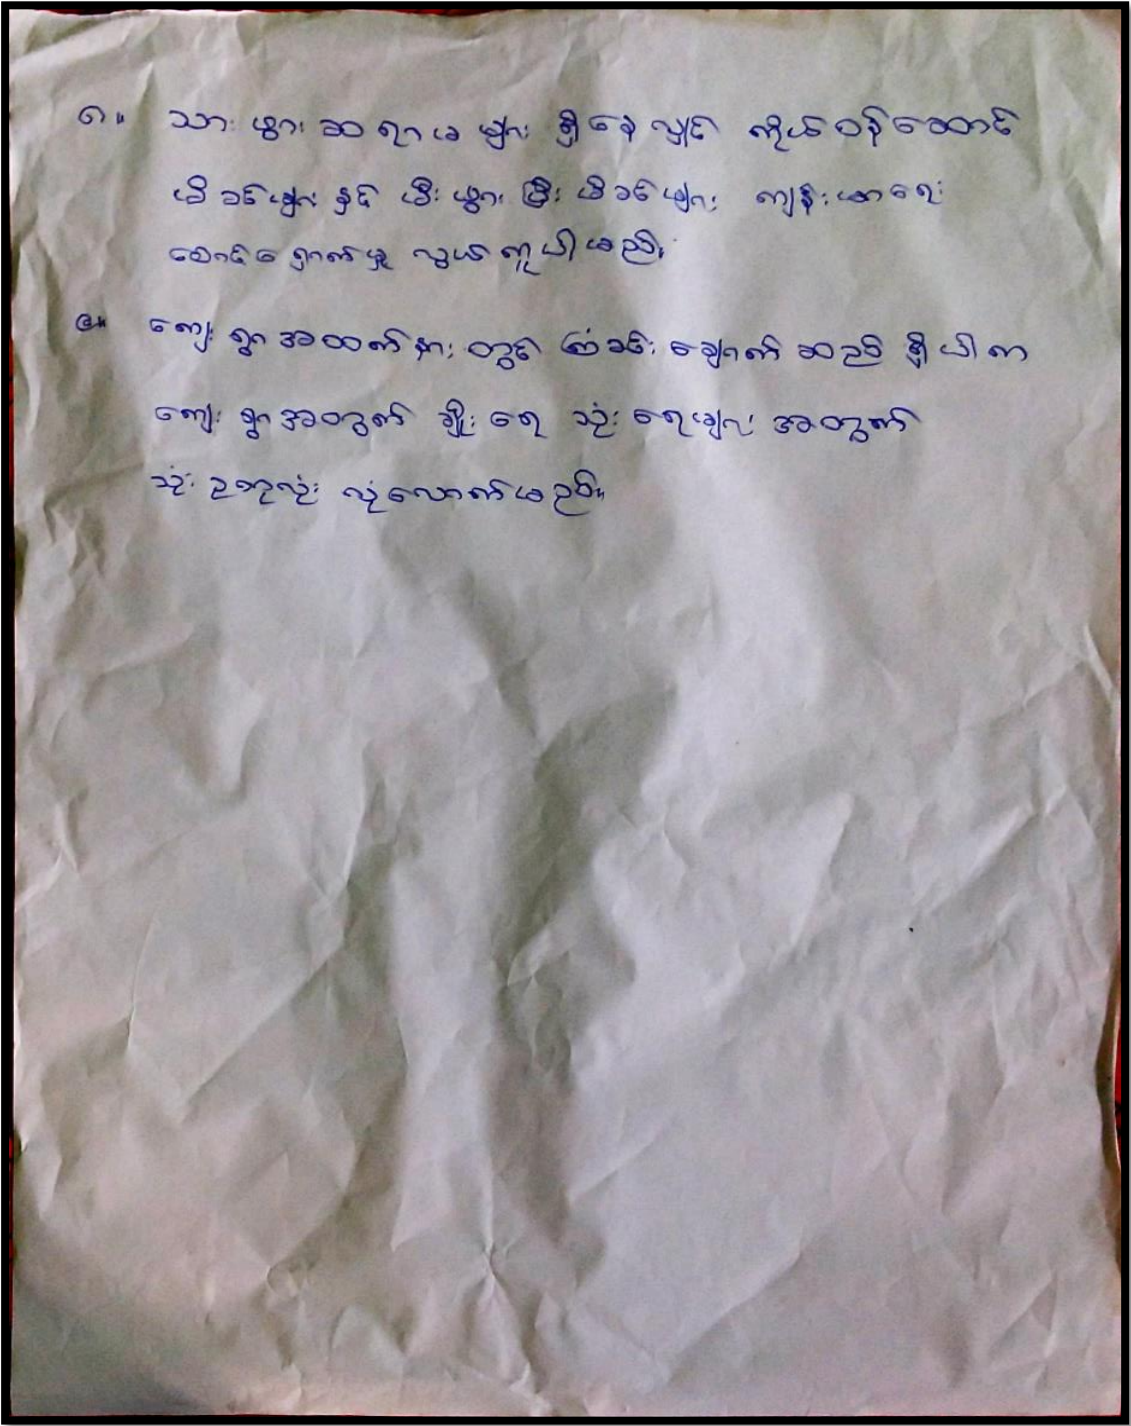 ၁။ သားဖွားဆရာမများ ရှိနေလျှင် ကိုယ်ဝန်ဆောင်
မိခင်များ နှင့် မီးဖွားပြီး မိခင်များ ကျန်းမာရေး
စောင့်ရှောက်မှု လွယ်ကူပါမည်။
၃။ ကျေးရွာအထက်နား တွင် ကြံခင်း ချောက်ဆည် ရှိပါက
ကျေးရွာအတွက် ချိုးရေ သုံးရေများ အတွက်
သုံးဥတုလုံး လုံလောက်မည်။